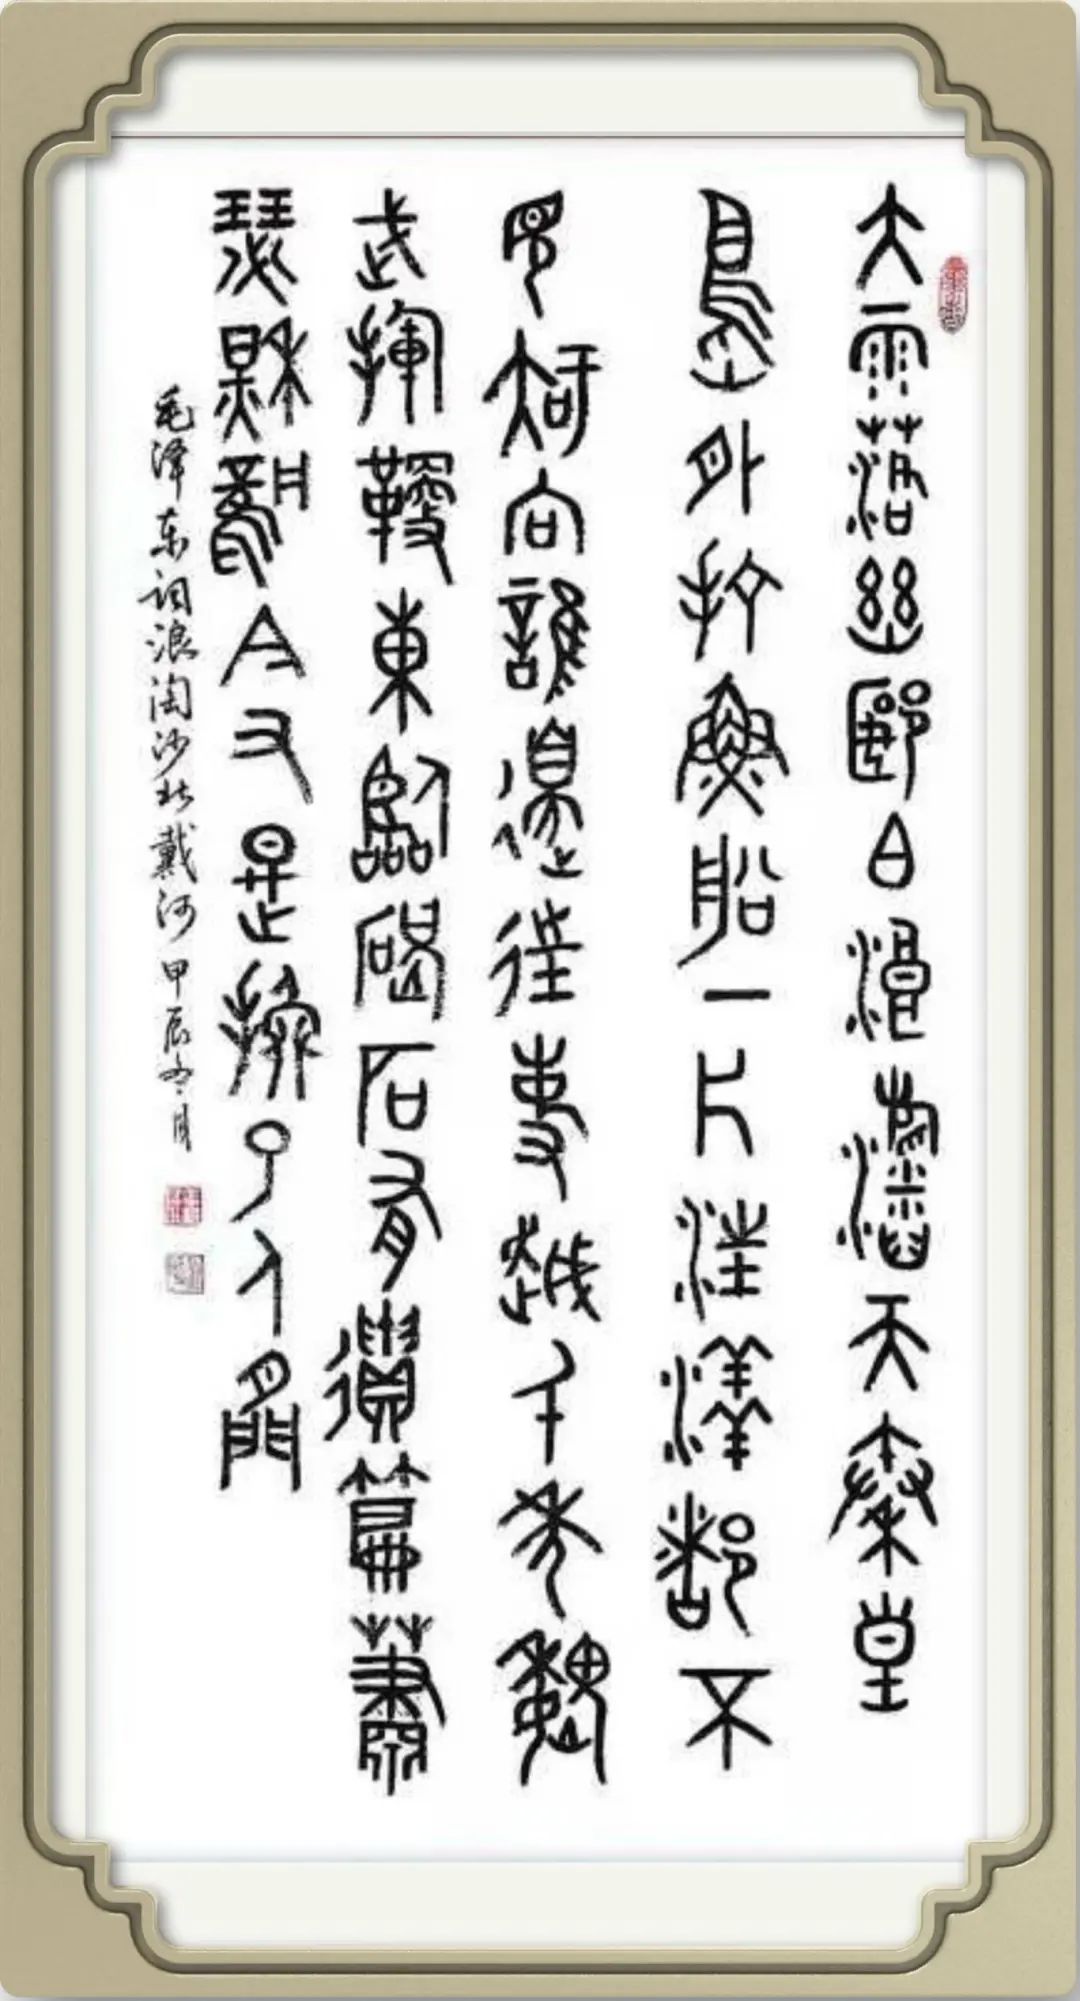 大雨落幽郾白浪滔天秦皇
島外打魚船一片汪洋都不
見知向誰邊往事越千年魏
武揮鞭東臨碣石有遺篇蕭
瑟秋風今又是換了人間
毛泽东词浪淘沙北戴河甲辰冬月